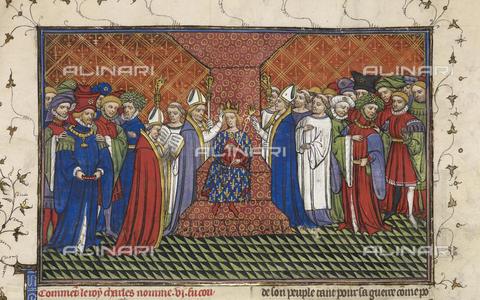 ALINARI ALINARI
ALINARI
ALINARI ALINARI
Comment le roy charles nomme .vi. fu cou
de son peuple tant pour sa guerre come po